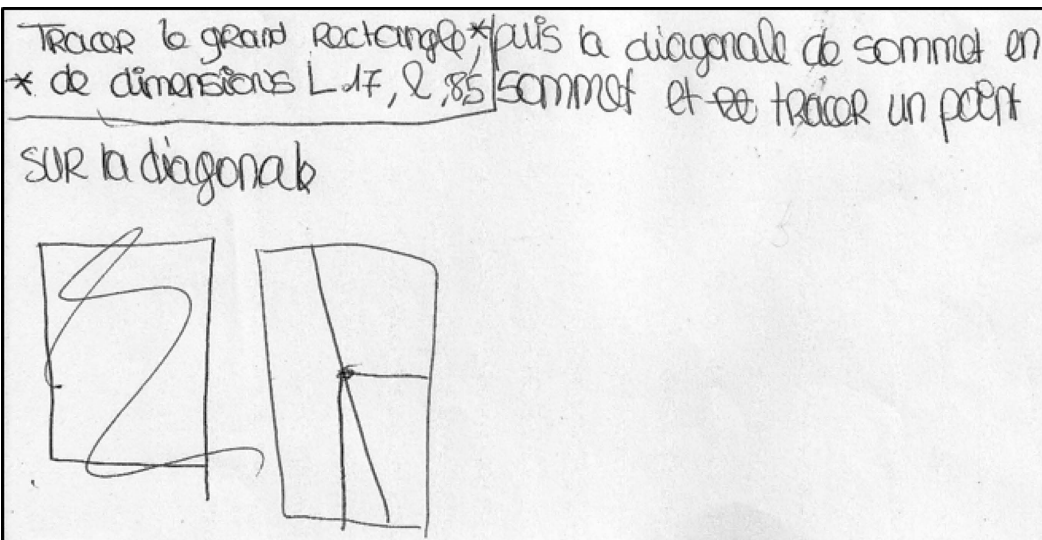 Tracer le grand rectangle*, puis la diagonale de sommet en
* de dimensions L 17, l ,85 sommet et tracer un point
sur la diagonale